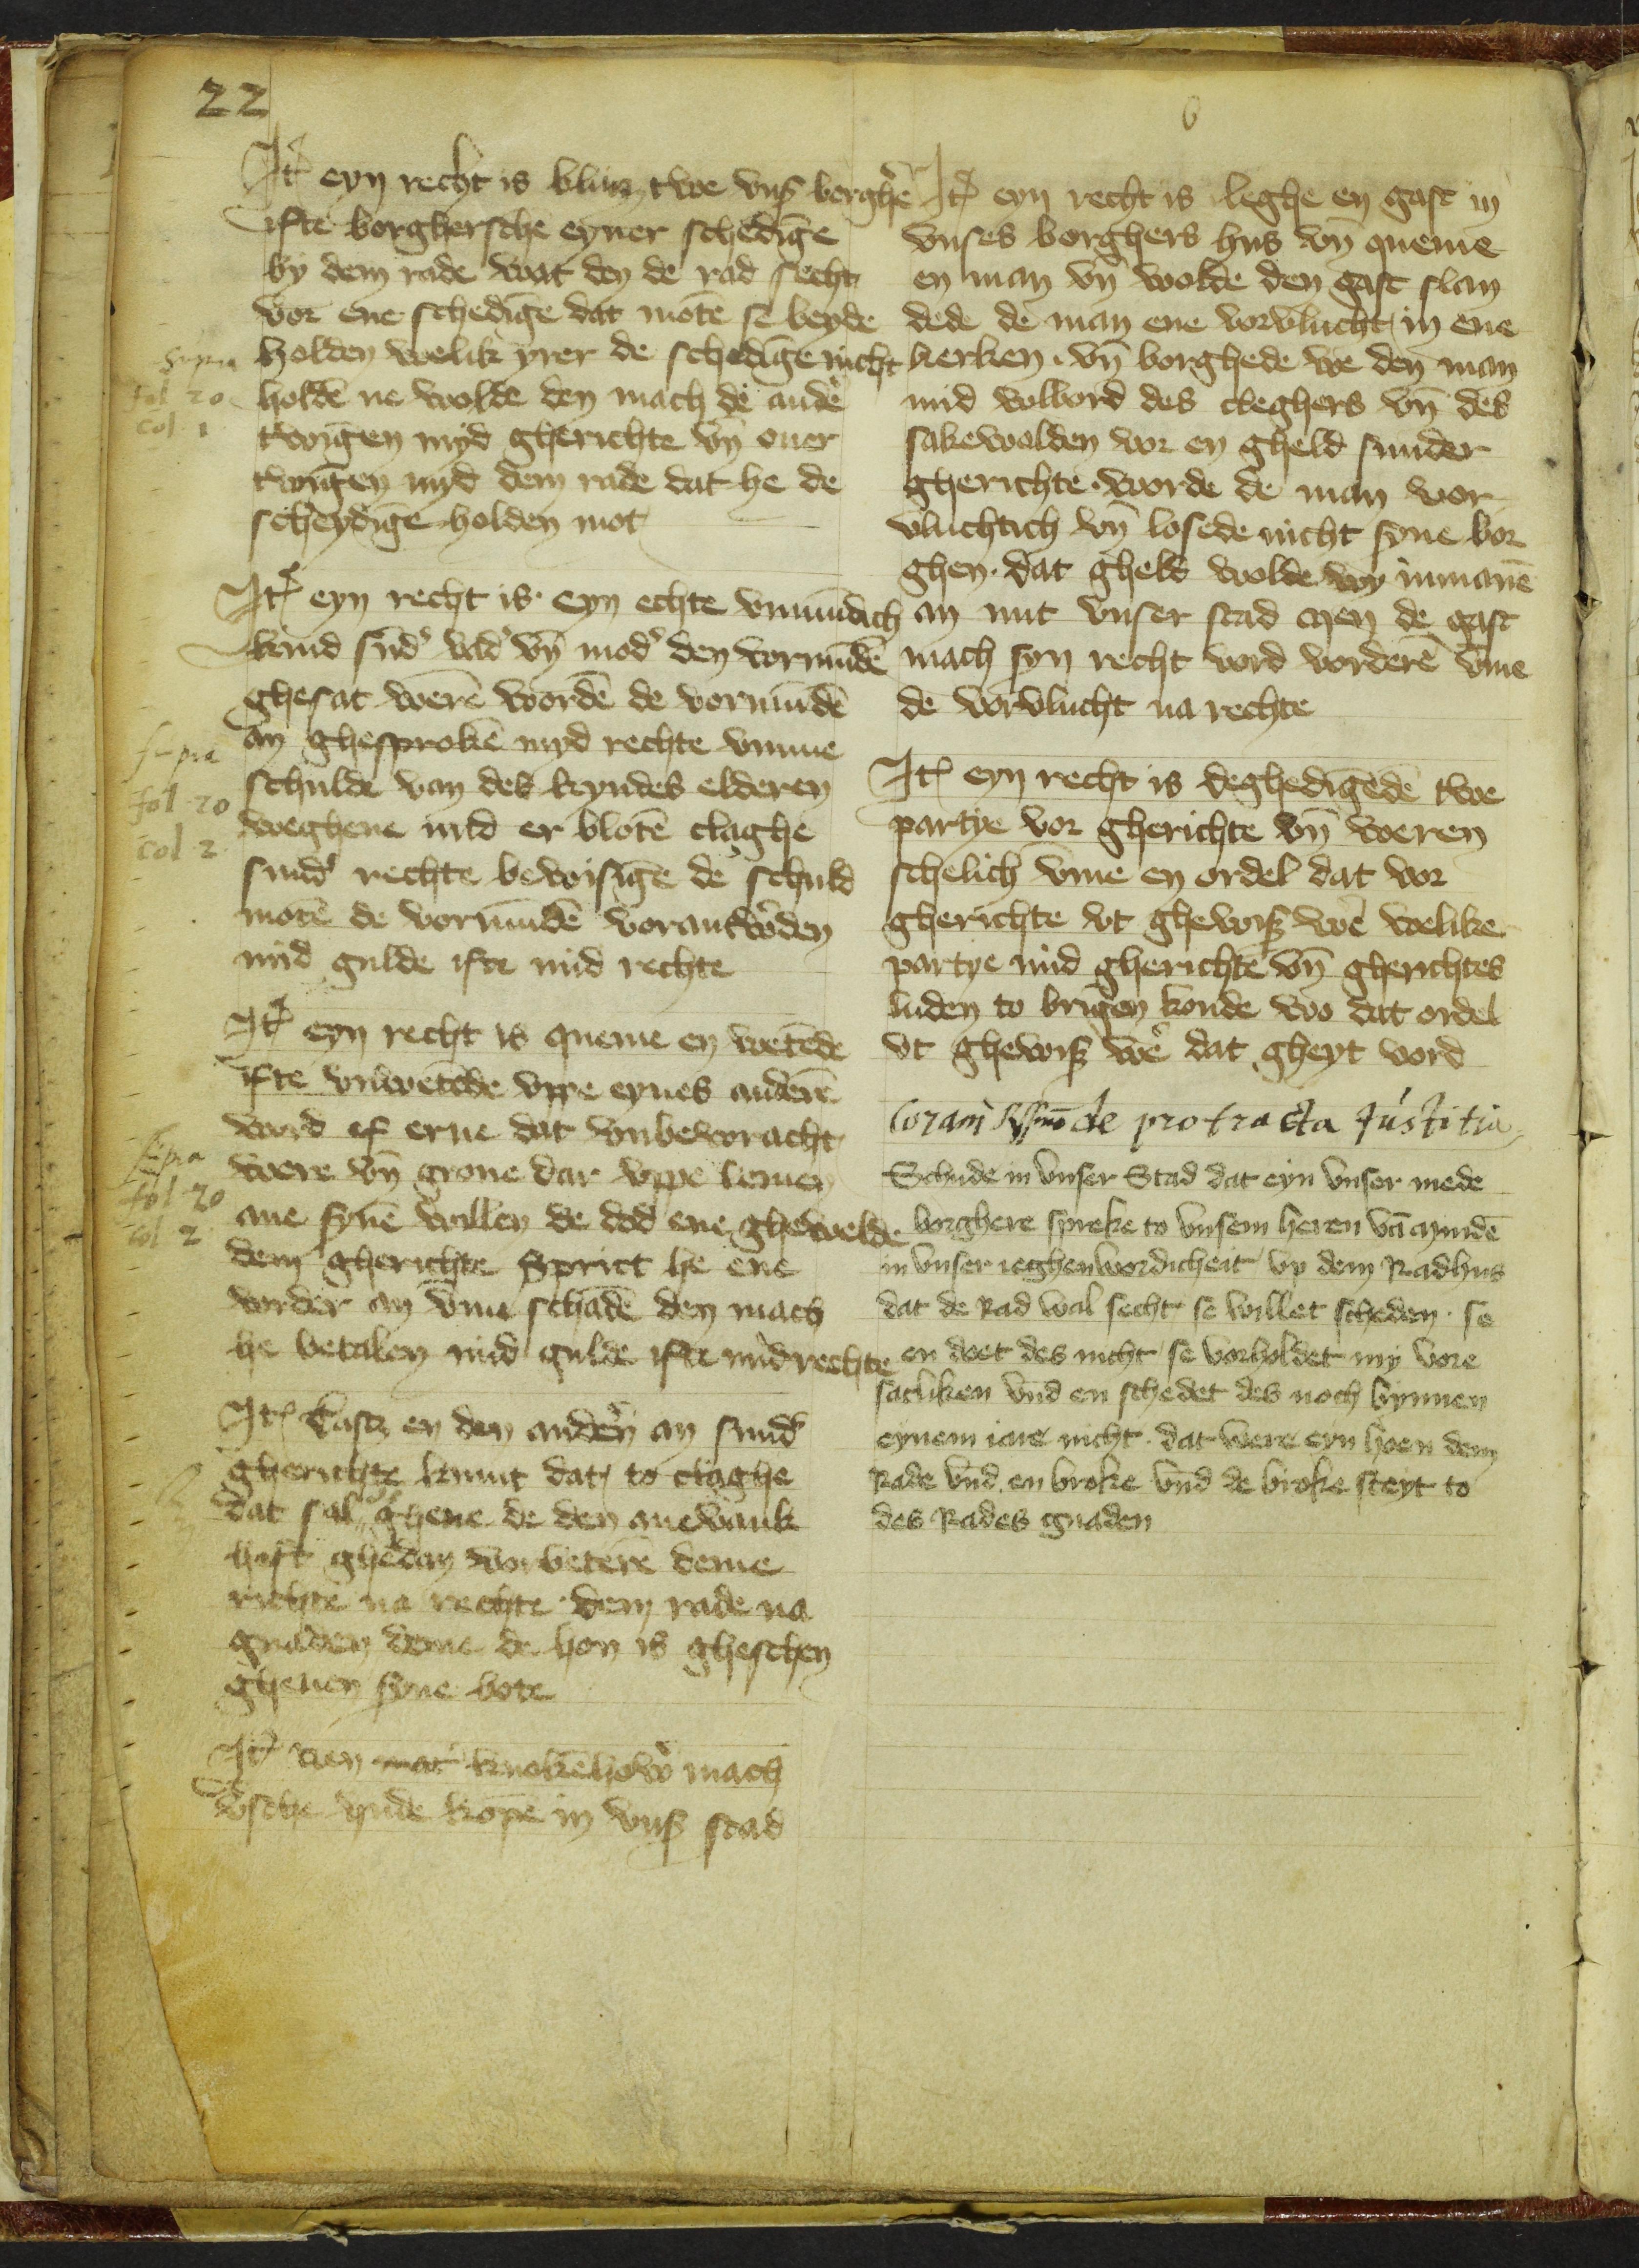 22
6
It̄ eyn recht is bliuz twe vnsꝫ borghē
ifte borghersche eyner schedīge
by dem rade wat den de rad secht
vor ene schedīge dat motē se beyde
holden welik yrer de schedīge nicht
holdē ne wolde den mach de andē
twīgen myd gherichte vn̄ ouer
twīgen myd dem rade dat he de
scheydīge holden mot
supra
fol 20
col 1
It̄ eyn recht is eyn echte vnmūdich
kīnd sūd' vad' vn̄ mod' den vormūdē
ghesat werē wordē de vormūdē
an ghesprokē myd rechte vmme
schulde van des kyndes elderen
weghene mid er blotē claghe
sūnd' rechte bewisīge de schuld
motē de vormūdē vorantw'den
mid gulde ifte mid rechte
supra
fol 20
col 2
It̄ eyn recht is queme en wetēde
ifte vnwetēde vppe eynes anderē
word ef erue dat vnbewracht
were vn̄ groue dar vppe lemen
ane synē willen de dod ene ghewelde
dem gherichte sprict he ene
vorder an vm̄e schadē den mach
he betalen mid gulde ifte mid rechte
supra
fol 20
col 2
It̄ Tastz en den anderē an sund'
gherichte kumt dat to claghe
dat sal ghene de den anevank
heft ghedan vorbeterē deme
richte na rechte dem rade na
gnaden deme de hon is gheschen
gheuen syne bote
It̄ nen knokēhow' mach
vische vnde kope in vnsꝫ stad
It̄ eyn recht is leghe en gast in
vnses borghers hus vn̄ queme
en man vn̄ wolde den gast slan
dede de man ene vorvlucht in ene
kerken vn̄ borghede we den man
mid volbord des cleghers vn̄ des
sakewolden vor en gheld sunder
gherichte worde de man vor
vluchtich vn̄ losede nicht syne bor
ghen dat gheld wolde wy inmanē
an nut vnser stad men de gast
mach syn recht vord vorderē vm̄e
de vorvlucht na rechte
It̄ eyn recht is deghedīgedē twe
partye vor gherichte vn̄ weren
schelich vm̄e en ordel dat vor
gherichte vt ghewisꝫ wē welike
partye mid gherichte vn̄ gherichtes
luden to brīgen konde wo dat ordel
vt ghewisꝫ wē dat gheyt vord
Coram de protracta Justitia
Schude in vnser Stad dat eyn vnser mede
borghere spreke to vnsem heren vā mundē
in vnser ieghenwordicheit vp dem Radhus
dat de Rad wal secht se willet scheden se
en doet des nicht se vorholdet my vore
satliken vnd en schedet des noch bynnen
eynem iare nicht dat were eyn hoen dem
Rade vnd en broke vnd de broke steyt to
des Rades gnaden